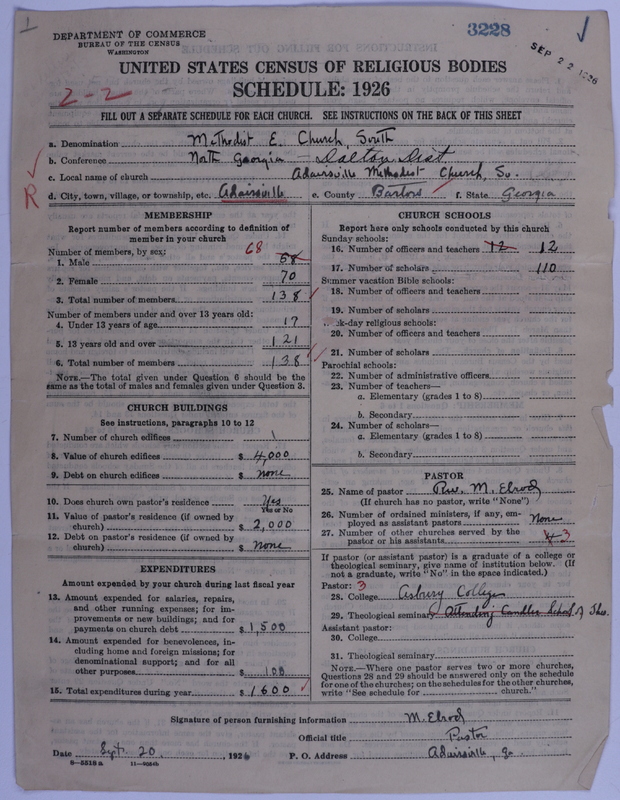 1
DEPARTMENT OF COMMERCE
BUREAU OF THE CENSUS
WASHINGTON
3228
SEP 22 1926
UNITED STATES CENSUS OF RELIGIOUS BODIES
2-2
SCHEDULE: 1926
FILL OUT A SEPARATE SCHEDULE FOR EACH CHURCH. SEE INSTRUCTIONS ON THE BACK OF THIS SHEET
a. Denomination Methodist E. Church, South
b. Conference North Georgia - Dalton Dist.
c. Local name of church Adairsville Methodist Church, So.
R
d. City, town, village, or township, etc. Adairsville e. County Bartow f. State Georgia
MEMBERSHIP
Report number of members according to definition of member in your church
Number of members, by sex: 68
1. Male 68
2. Female 70
3. Total number of members 138
Number of members under and over 13 years old:
4. Under 13 years of age 17
5. 13 years old and over 121
6. Total number of members 138
NOTE.—The total given under Question 6 should be the
same as the total of males and females given under Question 3.
CHURCH BUILDINGS
See instructions, paragraphs 10 to 12
7. Number of church edifices 1
8. Value of church edifices $ 4,000
9. Debt on church edifices $ none
10. Does church own pastor's residence Yes
Yes or No
11. Value of pastor's residence (if owned by
church) $ 2,000
12. Debt on pastor's residence (if owned by
church) $ none
EXPENDITURES
Amount expended by your church during last fiscal year
13. Amount expended for salaries, repairs,
and other running expenses; for im-
provements or new buildings; and for
payments on church debt $ 1,500
14. Amount expended for benevolences, in-
cluding home and foreign missions; for
denominational support; and for all
other purposes $ 100
15. Total expenditures during year $ 1600
CHURCH SCHOOLS
Report here only schools conducted by this church
Sunday schools:
16. Number of officers and teachers 12 12
17. Number of scholars 110
Summer vacation Bible schools:
18. Number of officers and teachers
19. Number of scholars
k-day religious schools:
20. Number of officers and teachers
21. Number of scholars
Parochial schools:
22. Number of administrative officers
23. Number of teachers—
a. Elementary (grades 1 to 8)
b. Secondary
24. Number of scholars—
a. Elementary (grades 1 to 8)
b. Secondary
PASTOR
25. Name of pastor Rev. M. Elrod
(If church has no pastor, write "None")
26. Number of ordained ministers, if any, em-
ployed as assistant pastors None
27. Number of other churches served by the
pastor or his assistants 4 3
If pastor (or assistant pastor) is a graduate of a college or
theological seminary, give name of institution below. (If
not a graduate, write "No" in the space indicated.)
Pastor: 3
28. College Asbury College
29. Theological seminary Attending Candler School of Theo.
Assistant pastor:
30. College
31. Theological seminary
NOTE.—Where one pastor serves two or more churches,
Questions 28 and 29 should be answered only on the schedule
for one of the churches; on the schedules for the other churches,
write "See schedule for church."
Signature of person furnishing information M. Elrod
Official title Pastor
Date Sept. 20, 1926 P. O. Address Adairsville, Ga.
8—5518 a 11—9084b